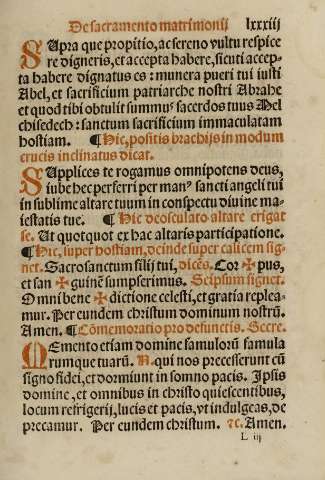 De sacramento matrimonij lxxxiij
Supra que propitio, ac sereno vultu respice
re digneris, et accepta habere, sicuti accep-
ta habere dignatus es : munera pueri tui iusti
Abel, et sacrificium patriarche nostri Abrahe
et quod tibi obtulit summus sacerdos tuus Mel
chisedech : sanctum sacrificium immaculatam
hostiam. ¶ Hic, positis brachijs in modum
crucis inclinatus dicat.
Supplices te rogamus omnipotens deus,
iube hec perferri per manꝰ sancti angeli tui
in sublime altare tuum in conspectu diuine ma-
iestatis tue. ¶ Hic deosculato altare erigat
se. Ut quotquot ex hac altaris participatione.
¶ Hic, super hostiam, deinde super calicem sig-
net. Sacrosanctum filij tui, dicēs. Cor ✠ pus,
et san ✠ guinē sumpserimus. Seipsum signet.
Omni bene ✠ dictione celesti, et gratia replea-
mur. Per eundem christum dominum nostrū.
Amen. ¶ Cōmemoratio pro defunctis. Secre.
Memento etiam domine famulorū famula
rumque tuarū. N. qui nos precesserunt cū
signo fidei, et dormiunt in somno pacis. Ipsis
domine, et omnibus in christo quiescentibus,
locum refrigerij, lucis et pacis, vt indulgeas, de
precamur. Per eundem christum. ⁊c. Amen.
L iij